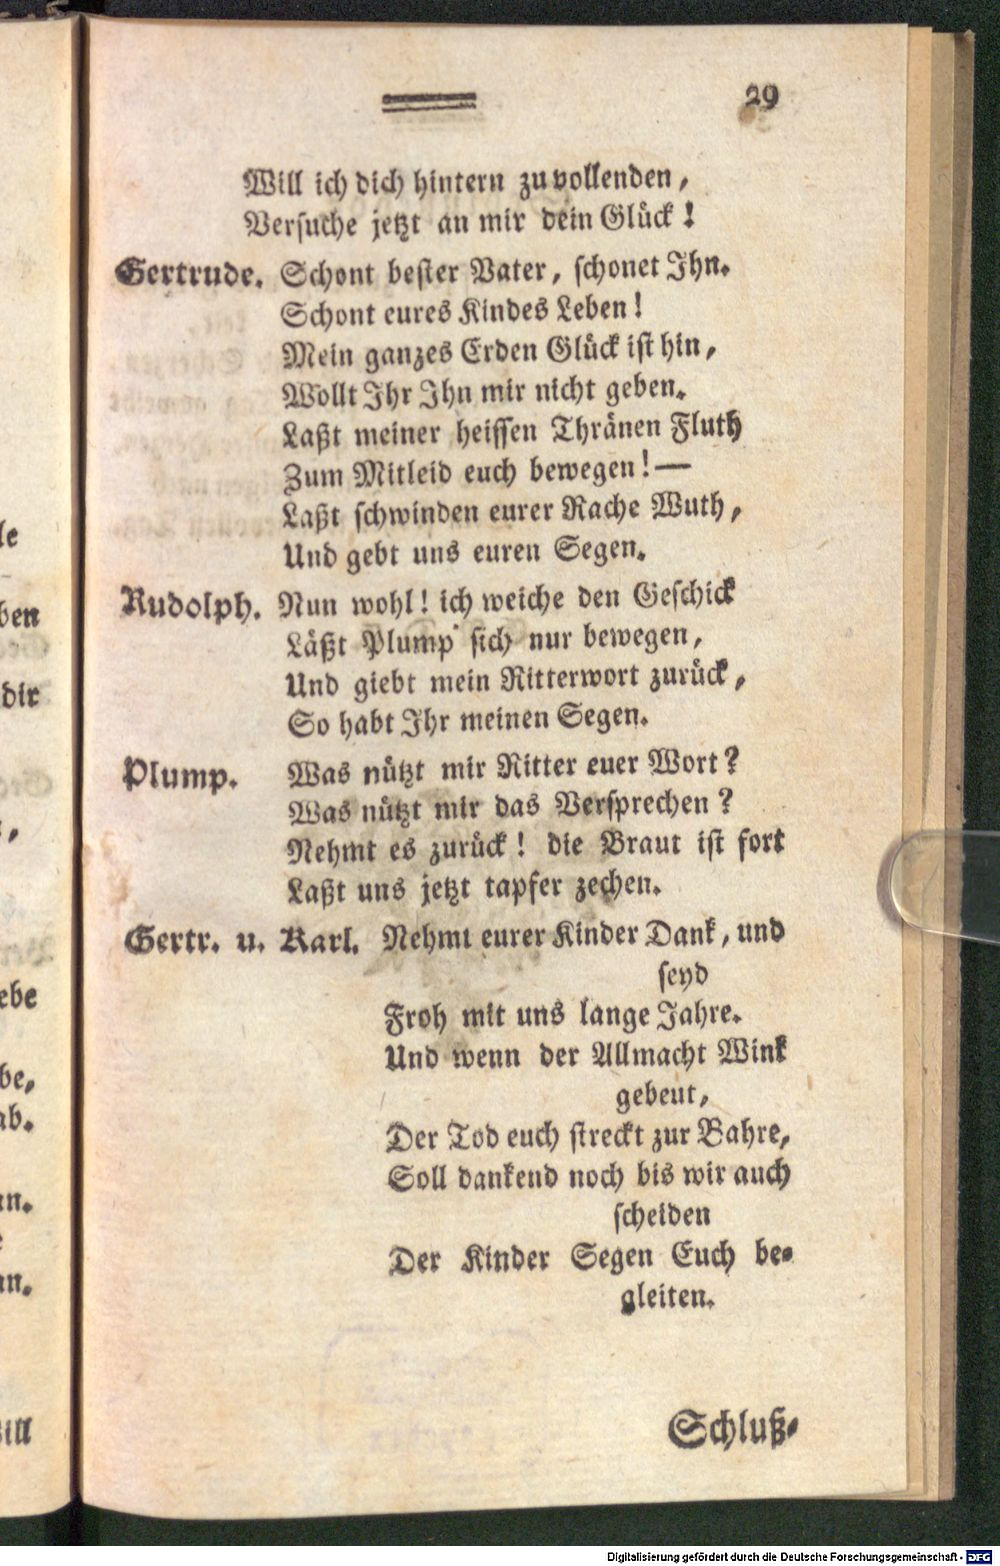 29
Will ich dich hintern zu vollenden,
Versuche jetzt an mir dein Glück!
Gertrude. Schont bester Vater, schonet Ihn.
Schont eures Kindes Leben!
Mein ganzes Erden Glück ist hin,
Wollt Ihr Ihn mir nicht geben.
Laßt meiner heissen Thränen Fluth
Zum Mitleid euch bewegen! —
Laßt schwinden eurer Rache Wuth,
Und gebt uns euren Segen.
Rudolph. Nun wohl! ich weiche den Geschick
Läßt Plump sich nur bewegen,
Und giebt mein Ritterwort zurück,
So habt Ihr meinen Segen.
Plump. Was nützt mir Ritter euer Wort?
Was nützt mir das Versprechen?
Nehmt es zurück! die Braut ist fort
Laßt uns jetzt tapfer zechen.
Gertr. u. Karl. Nehmt eurer Kinder Dank, und
seyd
Froh mit uns lange Jahre.
Und wenn der Allmacht Wink
gebeut,
Der Tod euch streckt zur Bahre,
Soll dankend noch bis wir auch
scheiden
Der Kinder Segen Euch be-
gleiten.
Schluß-
le
ben
dir
ebe
be,
ab.
an.
an.
ill
Digitalisierung gefördert durch die Deutsche Forschungsgemeinschaft - DFG